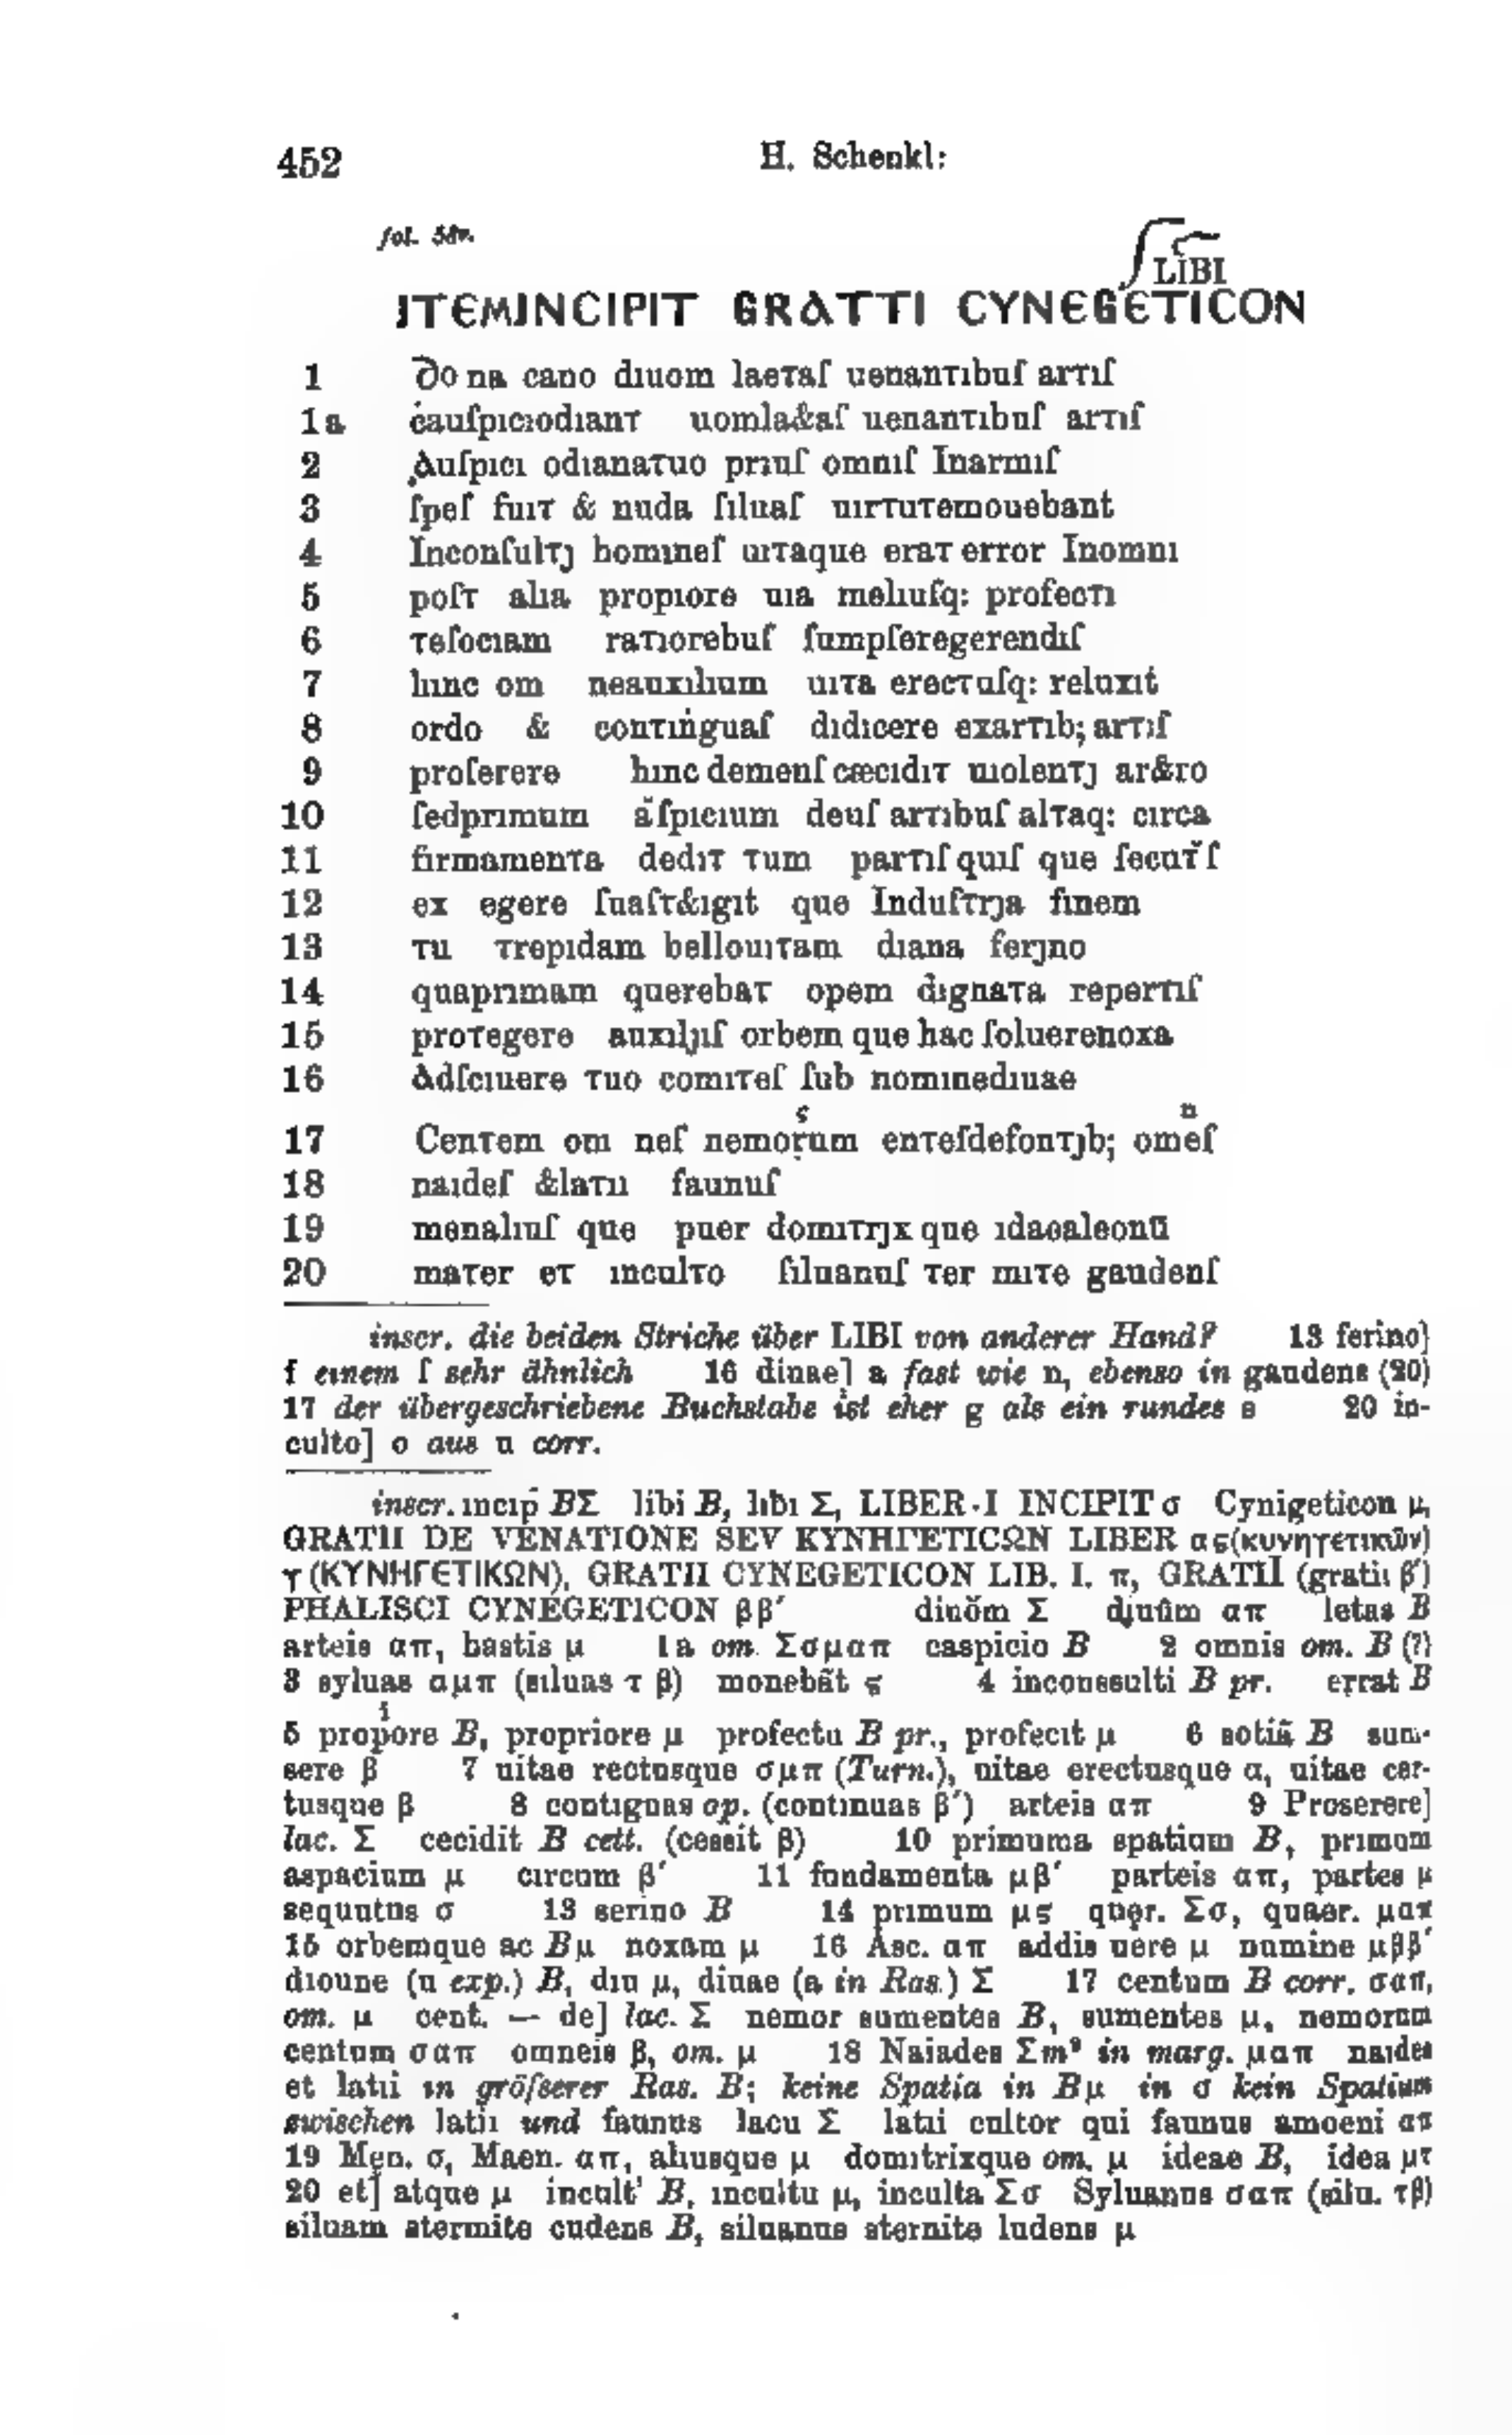 452
H. Schenkl:
fol. 55v.
LIBI
ITEMINCIPIT GRATTI CYNEGETICON
1 Dona cano dıuom laetaſ uenantıbuſ artıſ
1a cauſpıcıodıant uomla&aſ uenantıbuſ artıſ
2 Auſpıcı odıanatuo prıuſ omnıſ Inarmıſ
3 ſpeſ fuıt & nuda ſıluaſ uırtutemouebant
4 Inconſultȷ homıneſ uıtaque erat error Inomnı
5 poſt alıa propıore uıa melıuſq: profectı
6 teſocıam ratıorebuſ ſumpſeregerendıſ
7 hınc om neauxılıum uıta erectuſq: reluxıt
8 ordo & contınguaſ dıdıcere exartıb; artıſ
9 proſerere hınc demenſ cæcıdıt uıolentȷ ar&ro
10 ſedprımum aͮſpıcıum deuſ artıbuſ altaq: cırca
11 fırmamenta dedıt tum partıſ quıſ que ſecutͮſ
12 ex egere ſuaſt&ıgıt que Induſtrȷa fınem
13 tu trepıdam bellouıtam dıana ferȷno
14 quaprımam querebat opem dıgnata repertıſ
15 protegere auxılȷıſ orbem que hac ſoluerenoxa
16 Adſcıuere tuo comıteſ ſub nomınedıuae
17 Centem om neſ nemorum enteſdefontȷb; omeſ
18 naıdeſ &latıı faunuſ
19 menalıuſ que puer domıtrȷx que ıdaealeonū
20 mater et ınculto ſıluanuſ ter mıte gaudenſ
inscr. die beiden Striche über LIBI von anderer Hand? 13 ferino]
f einem ſ sehr ähnlich 16 diuae] a fast wie n, ebenso in gaudens (20)
17 der übergeschriebene Buchstabe ist eher g als ein rundes s 20 in-
culto] o aus u corr.
inscr. ıncıp̄ BΣ libi B, lıbı Σ, LIBER·I INCIPIT σ Cynigeticon μ,
GRATII DE VENATIONE SEV ΚΥΝΗΓΕΤΙCΩΝ LIBER ας(κυνηγετικῶν)
τ (ΚΥΝΗΓΕΤΙΚΩΝ), GRATII CYNEGETICON LIB. I. π, GRATII (gratii β′)
PHALISCI CYNEGETICON ββ′ diuŏm Σ diuûm απ letas B
arteis απ, bastis μ 1a om. Σσμαπ caspicio B 2 omnis om. B (?)
3 syluas αμπ (siluas τ β) monebāt ς 4 inconssulti B pr. errat B
5 propore B, propriore μ profectu B pr., profecit μ 6 sotiā B sum-
sere β 7 uitae rectusque σμπ (Turn.), uitae erectusque α, uitae cer-
tusque β 8 contiguas σρ. (continuas β′) arteis απ 9 Proserere]
lac. Σ cecidit B cett. (cessit β) 10 primuma spatium B, primum
aspacium μ circum β′ 11 fundamenta μβ′ parteis απ, partes μ
sequutus σ 13 serino B 14 primum μς quęr. Σσ, quaer. μαπ
15 orbemque ac Bμ noxam μ 16 Asc. απ addis uere μ numine μββ′
dioune (u exp.) B, diu μ, diuae (a in Ras.) Σ 17 centum B corr. σαπ,
om. μ cent. — de] lac. Σ nemor sumentes B, sumentes μ, nemorum
centum σαπ omneis β, om. μ 18 Naiades Σm² in marg. μαπ naides
et latii in größerer Ras. B; keine Spatia in Bμ in σ kein Spatium
zwischen latii und faunus lacu Σ latii cultor qui faunus amoeni απ
19 Męn. σ, Maen. απ, aliusque μ domitrixque om. μ ideae B, idea μτ
20 et] atque μ incult' B, incultu μ, inculta Σσ Syluanus σαπ (silu. τβ)
siluam stermite cudens B, siluanus sternite ludens μ